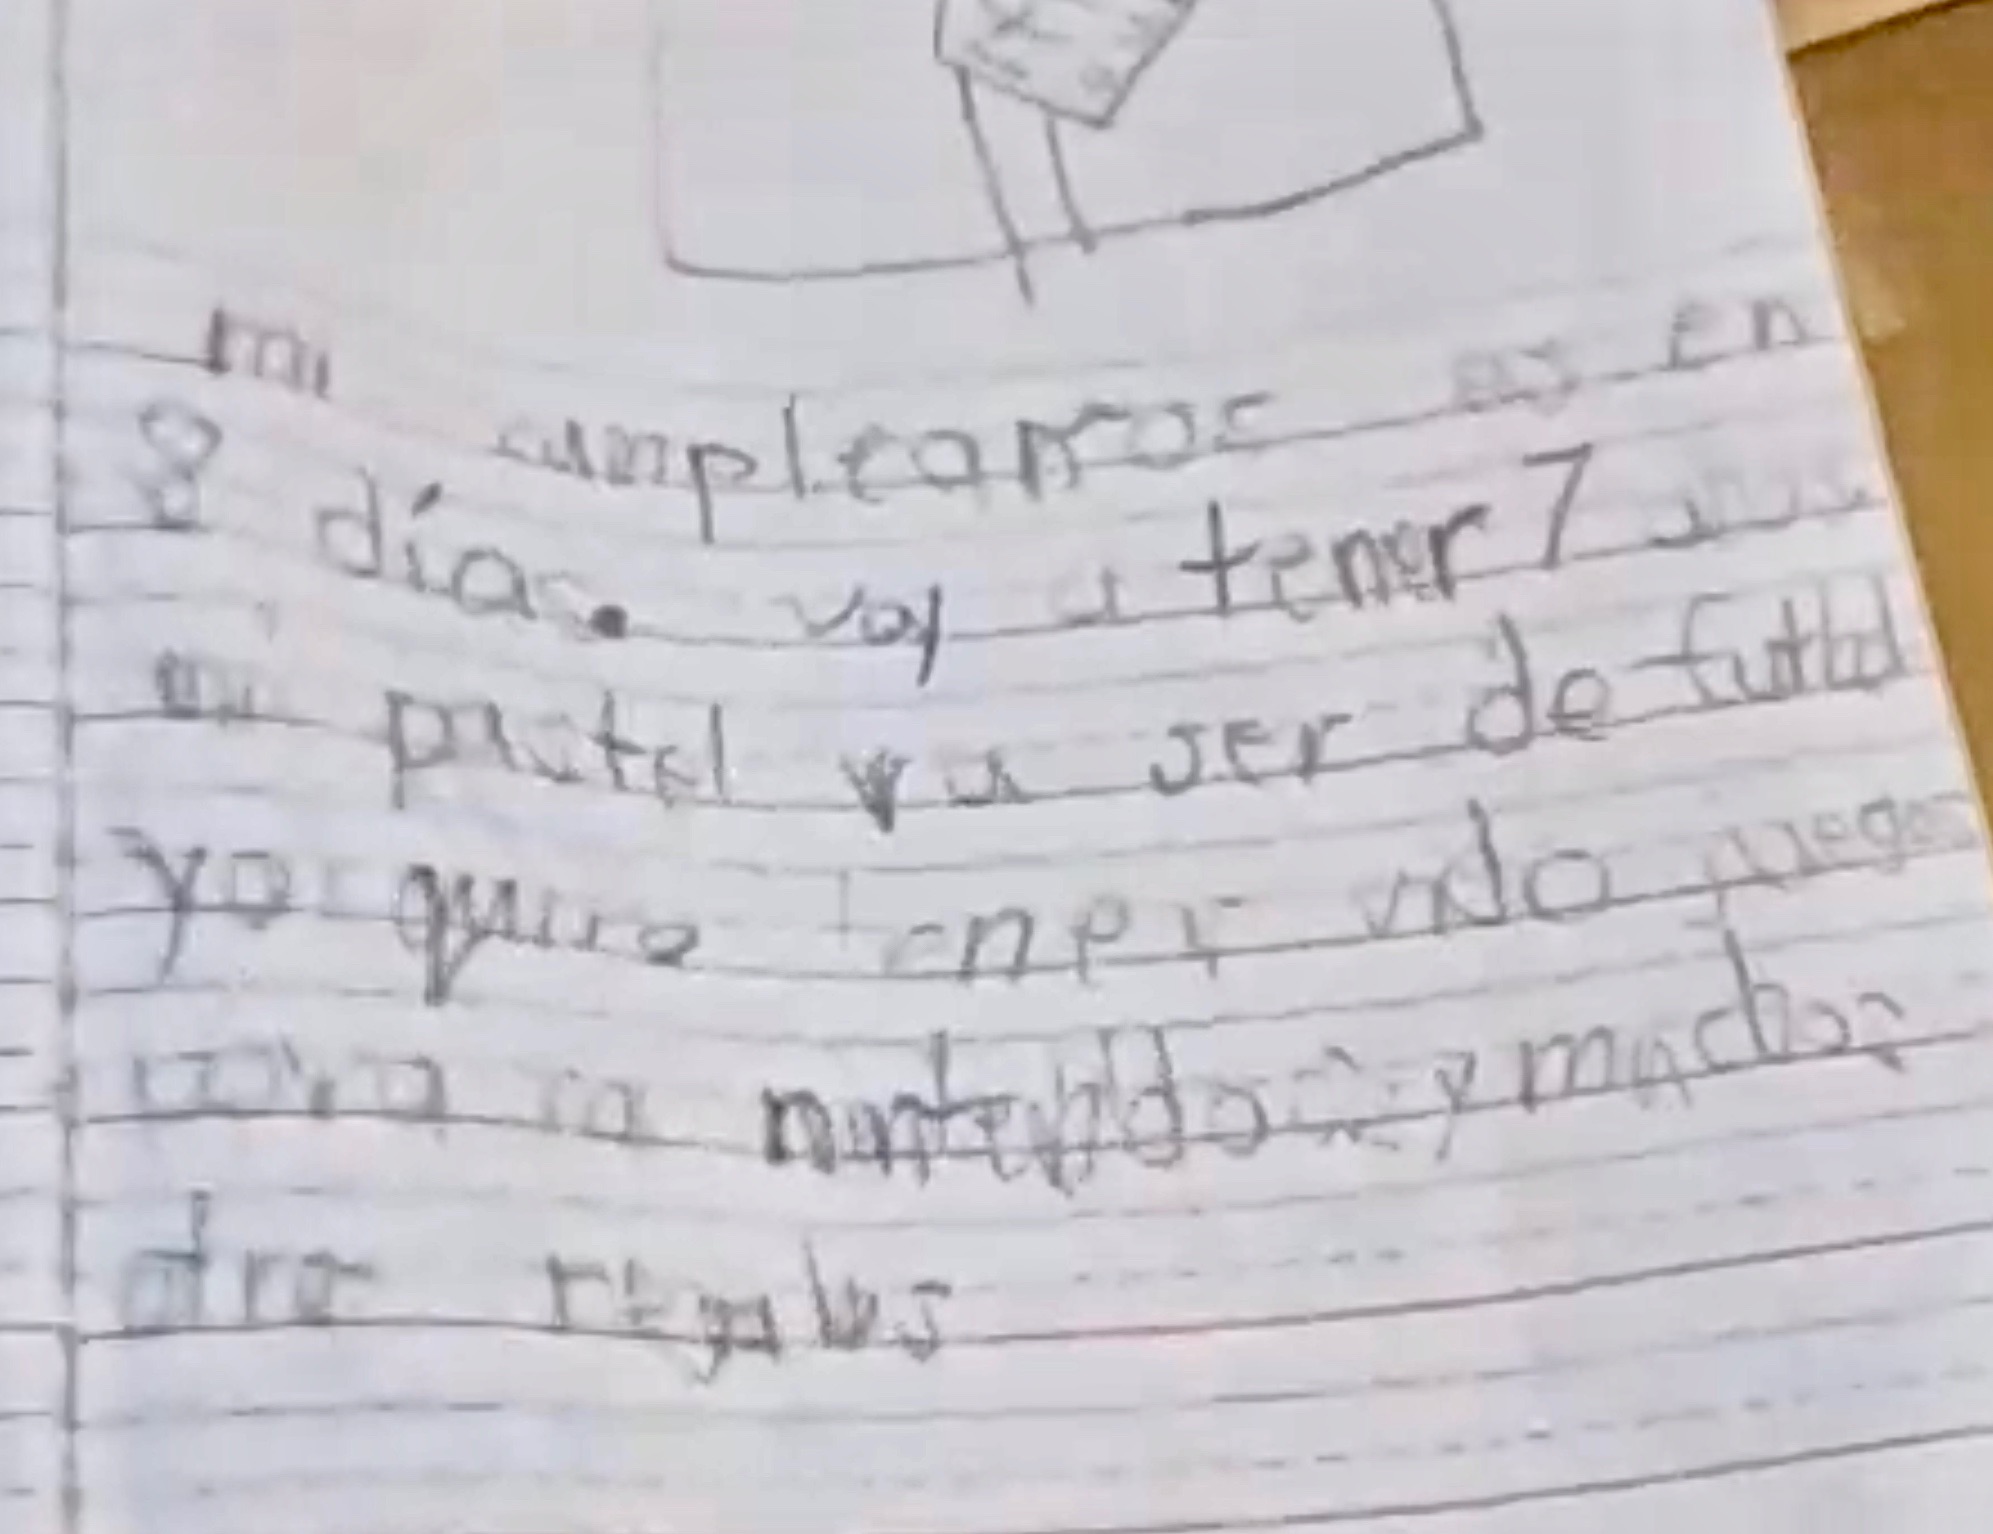 mi cumpleaños es en
8 días. voy a tener 7
mi pastel va ser de futbol
yo quiero tener video juegos
como nintendo y muchos
regalos